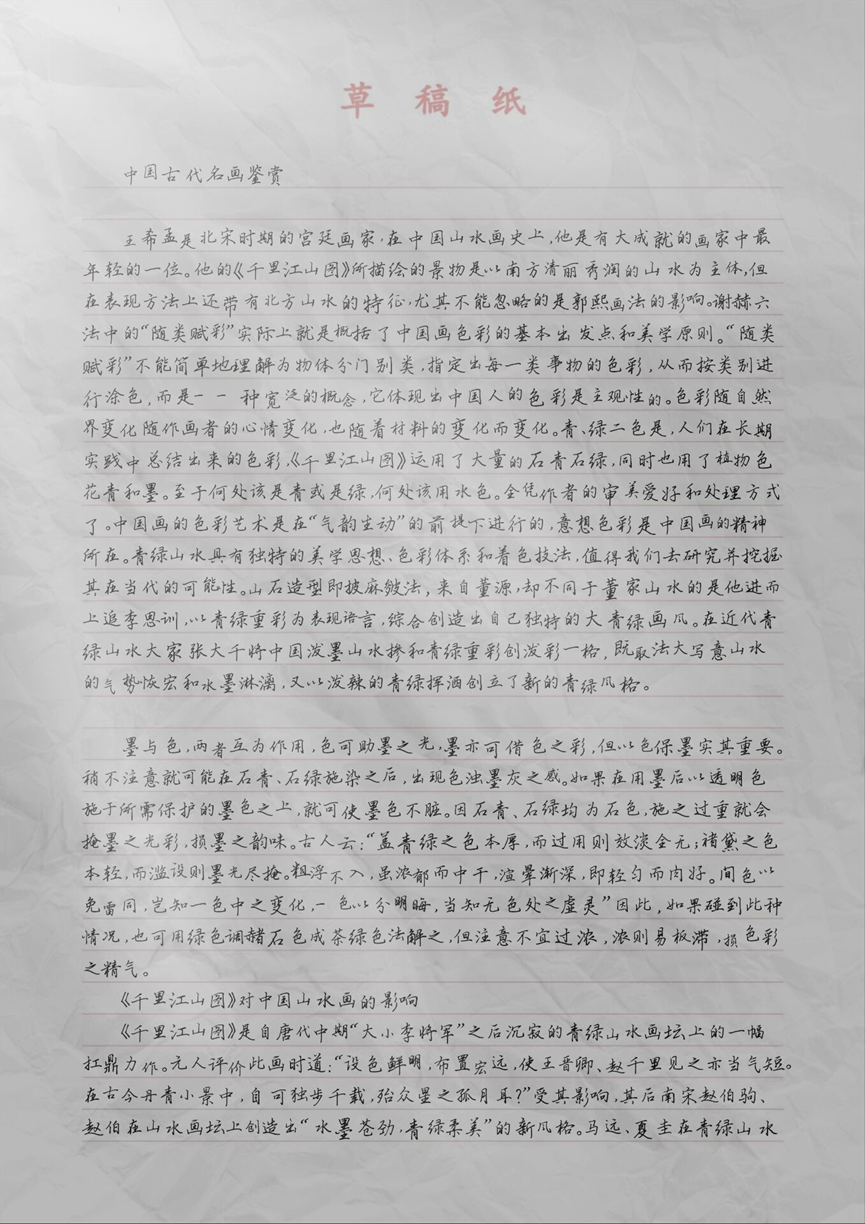 草稿纸
中国古代名画鉴赏
王希孟是北宋时期的宫廷画家,在中国山水画史上,他是有大成就的画家中最
年轻的一位。他的《千里江山图》所描绘的景物是以南方清丽秀润的山水为主体,但
在表现方法上还带有北方山水的特征,尤其不能忽略的是郭熙画法的影响。谢赫六
法中的“随类赋彩”实际上就是概括了中国画色彩的基本出发点和美学原则。“随类
赋彩”不能简单地理解为物体分门别类,指定出每一类事物的色彩,从而按类别进
行涂色,而是一一种宽泛的概念,它体现出中国人的色彩是主观性的。色彩随自然
界变化随作画者的心情变化,也随着材料的变化而变化。青、绿二色是,人们在长期
实践中总结出来的色彩,《千里江山图》运用了大量的石青石绿,同时也用了植物色
花青和墨。至于何处该是青或是绿,何处该用水色。全凭作者的审美爱好和处理方式
了。中国画的色彩艺术是在“气韵生动”的前提下进行的,意想色彩是中国画的精神
所在。青绿山水具有独特的美学思想、色彩体系和着色技法,值得我们去研究并挖掘
其在当代的可能性。山石造型即披麻皴法,来自董源,却不同于董家山水的是他进而
上追李思训,以青绿重彩为表现语言,综合创造出自己独特的大青绿画风。在近代青
绿山水大家张大千将中国泼墨山水掺和青绿重彩创泼彩一格,既取法大写意山水
的气势恢宏和水墨淋漓,又以泼辣的青绿挥洒创立了新的青绿风格。
墨与色,两者互为作用,色可助墨之光,墨亦可借色之彩,但以色保墨实其重要。
稍不注意就可能在石青、石绿施染之后,出现色浊墨灰之感。如果在用墨后以透明色
施于所需保护的墨色之上,就可使墨色不脏。因石青、石绿均为石色,施之过重就会
掩墨之光彩,损墨之韵味。古人云:“盖青绿之色本厚,而过用则放淡全无;褚黛之色
本轻,而滥设则墨光尽掩。粗浮不入,虽浓郁而中干,渲晕渐深,即轻匀而肉好。间色以
免雷同,岂知一色中之变化,一色以分明晦,当知无色处之虚灵”因此,如果碰到此种
情况,也可用绿色调赭石色成茶绿色法解之,但注意不宜过浓,浓则易板滞,损色彩
之精气。
《千里江山图》对中国山水画的影响
《千里江山图》是自唐代中期“大小李将军”之后沉寂的青绿山水画坛上的一幅
扛鼎力作。元人评价此画时道:“设色鲜明,布置宏远,使王晋卿、赵千里见之亦当气短。
在古今丹青小景中,自可独步千载,殆众星之孤月耳?”受其影响,其后南宋赵伯驹、
赵伯在山水画坛上创造出“水墨苍劲,青绿柔美”的新风格。马远、夏圭在青绿山水